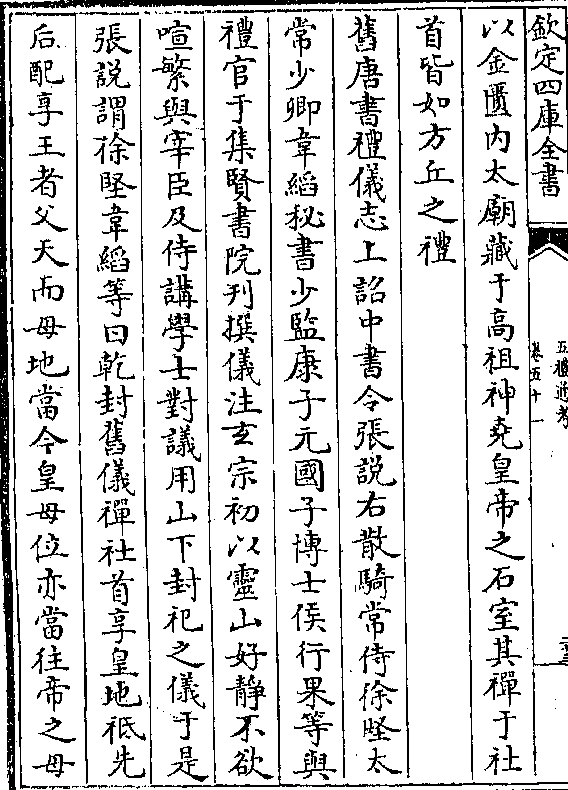 欽定四庫全書
五禮通考
卷五十一
以金匱内太廟藏于高祖神堯皇帝之石室其禪于社
首皆如方丘之禮
舊唐書禮儀志上詔中書令張説右散騎常侍徐堅太
常少卿韋縚秘書少監康子元國子博士侯行果等與
禮官于集賢書院刊撰儀注玄宗初以靈山好静不欲
喧繁與宰臣及侍講學士對議用山下封祀之儀于是
張説謂徐堅韋縚等曰乾封舊儀禪社首享皇地祗先
后配享王者父天而母地當今皇母位亦當往帝之母